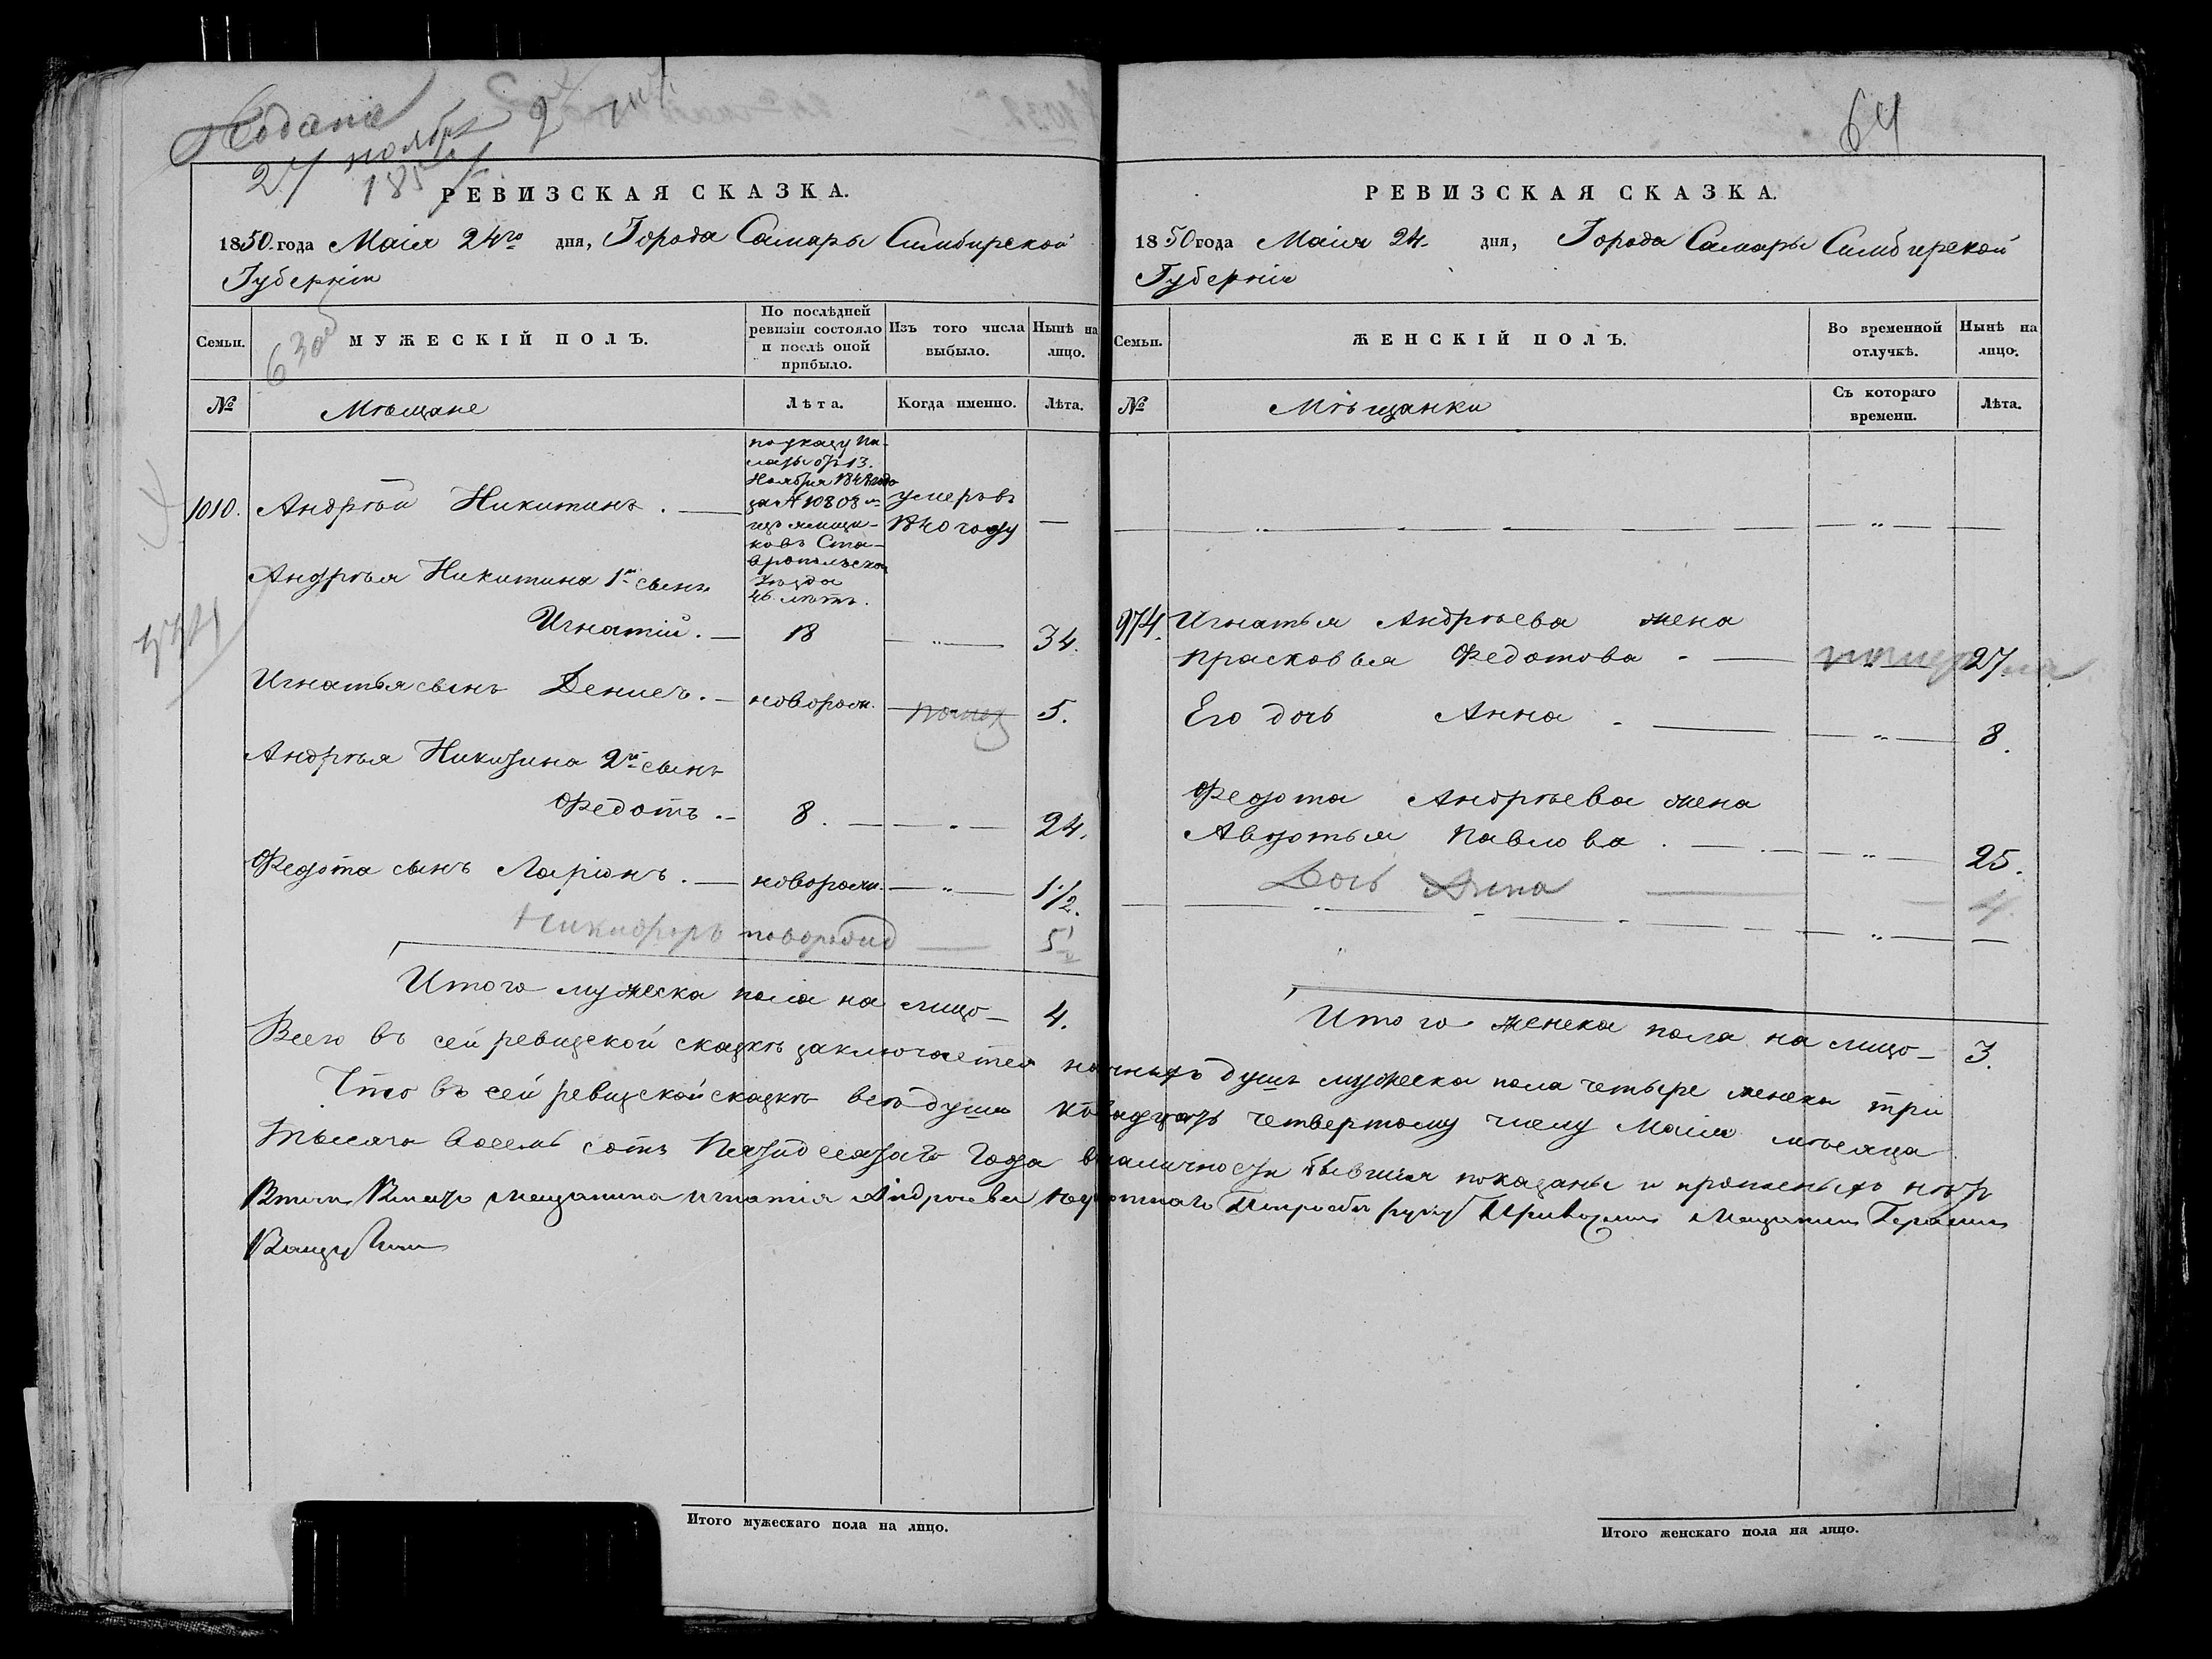 Подана
27 ноября
185
64
РЕВИЗСКАЯ СКАЗКА.
1850. года Маія 24го дня, Города Самары Симбирской
Губерніи
Семьи.
МУЖЕСКІЙ ПОЛЪ.
По послѣдней
ревизіи состояло
и послѣ оной
прибыло.
Изъ того числа
выбыло.
Нынѣ на
лицо.
№
Мѣщане
Лѣта.
Когда именно.
Лѣта.
1010. Андрѣй Никитинъ.
по указу Па-
латы отъ 13.
Ноября 184 года
за № 10808 и-
зъ ямщи-
ковъ Ста-
вропольскаго
Уѣзда
46. лѣтъ.
умеръ въ
1840 году
Андрѣя Никитина 1й сынъ
Игнатій. 18 " 34.
Игнатья сынъ Денисъ. новорож. 5.
Андрѣя Никитина 2й сынъ
Федотъ. 8. " 24.
Федота сынъ Ларіонъ. новорож. " 1 1/2.
Никифоръ новорожд
Итого мужеска пола на лицо 4.
РЕВИЗСКАЯ СКАЗКА.
1850 года Маія 24. дня, Города Самары Симбирской
Губерніи
Семьи.
ЖЕНСКІЙ ПОЛЪ.
Во временной
отлучкѣ.
Нынѣ на
лицо.
№
Мѣщанки
Съ котораго
времени.
Лѣта.
974. Игнатья Андрѣева жена
Прасковья Федотова 27.
Его дочь Анна " 8.
Федота Андрѣева жена
Авдотья Павлова. " 25.
Дочь Анна 4.
Итого женска пола на лицо 3.
Всего въ сей ревизской сказкѣ заключается наличныхъ душъ мужеска пола четыре женска три
Что въ сей ревизской сказкѣ всѣ души къ двадцать четвертому числу Маія мѣсяца
тысяча восемь сотъ Пятидесятаго года въ наличности бывшія показаны и прописныхъ нѣтъ
мещанина Игнатія Андреева неграмотнаго мещанинъ
Итого мужескаго пола на лицо.
Итого женскаго пола на лицо.